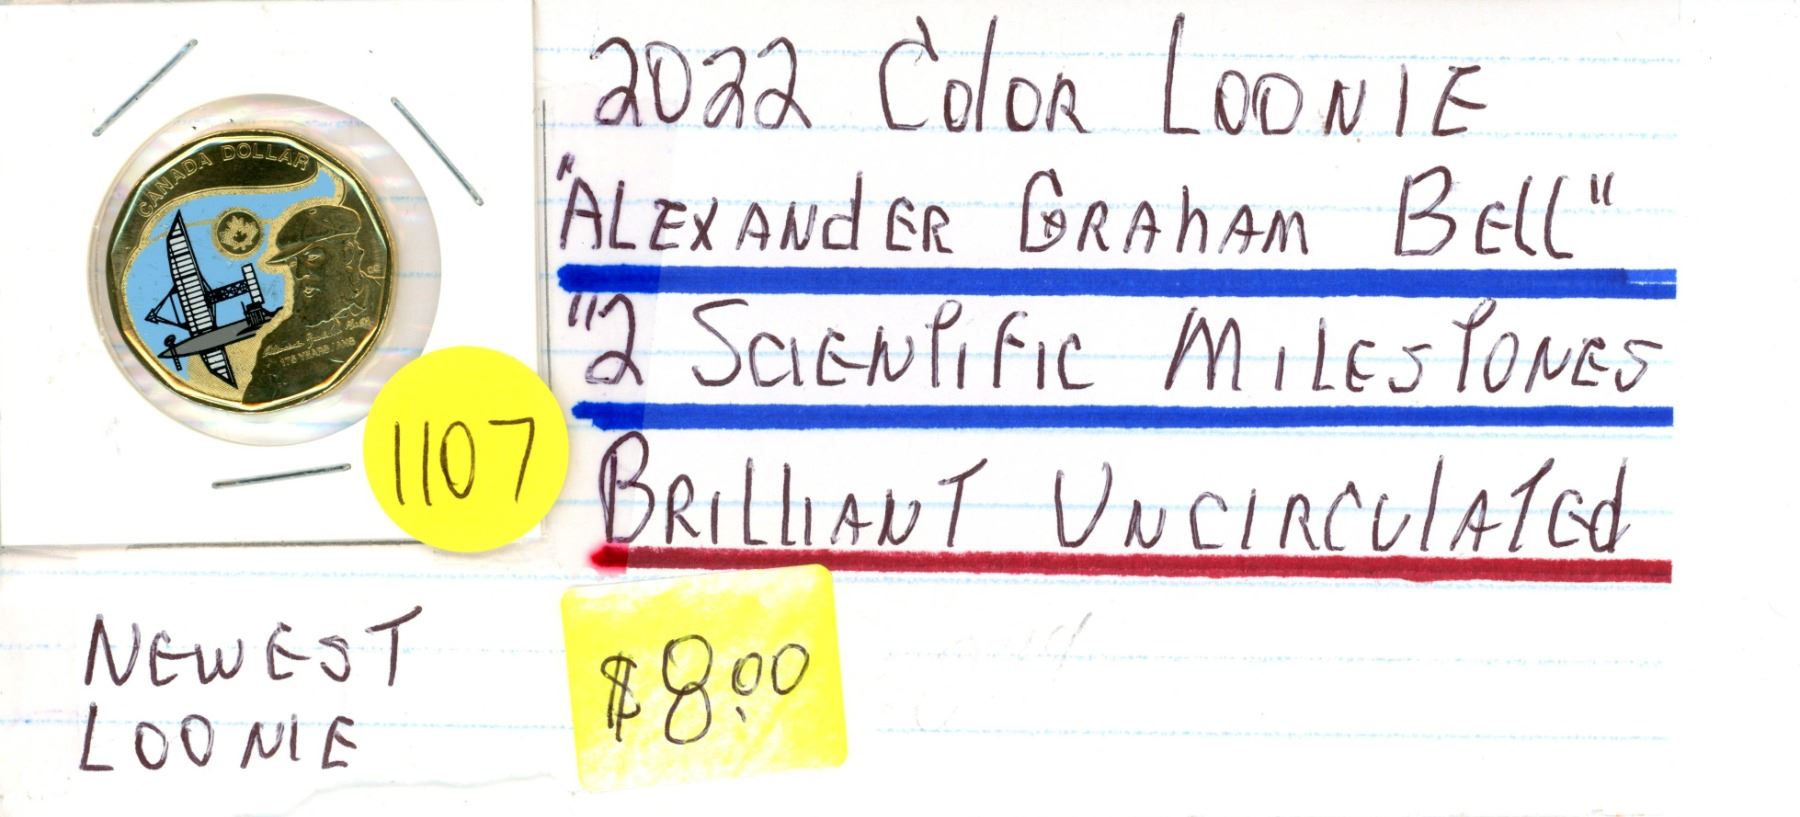 2022 Color LOONIE
"ALEXANdER GRAhAM BEll"
"2 SCIENTIFIC MILESTONES
BRIllIANT UNCIRCUlATEd
CANADA DOLLAR
175 YEARS / ANS
1107
NEWEST
LOONIE
$8.00